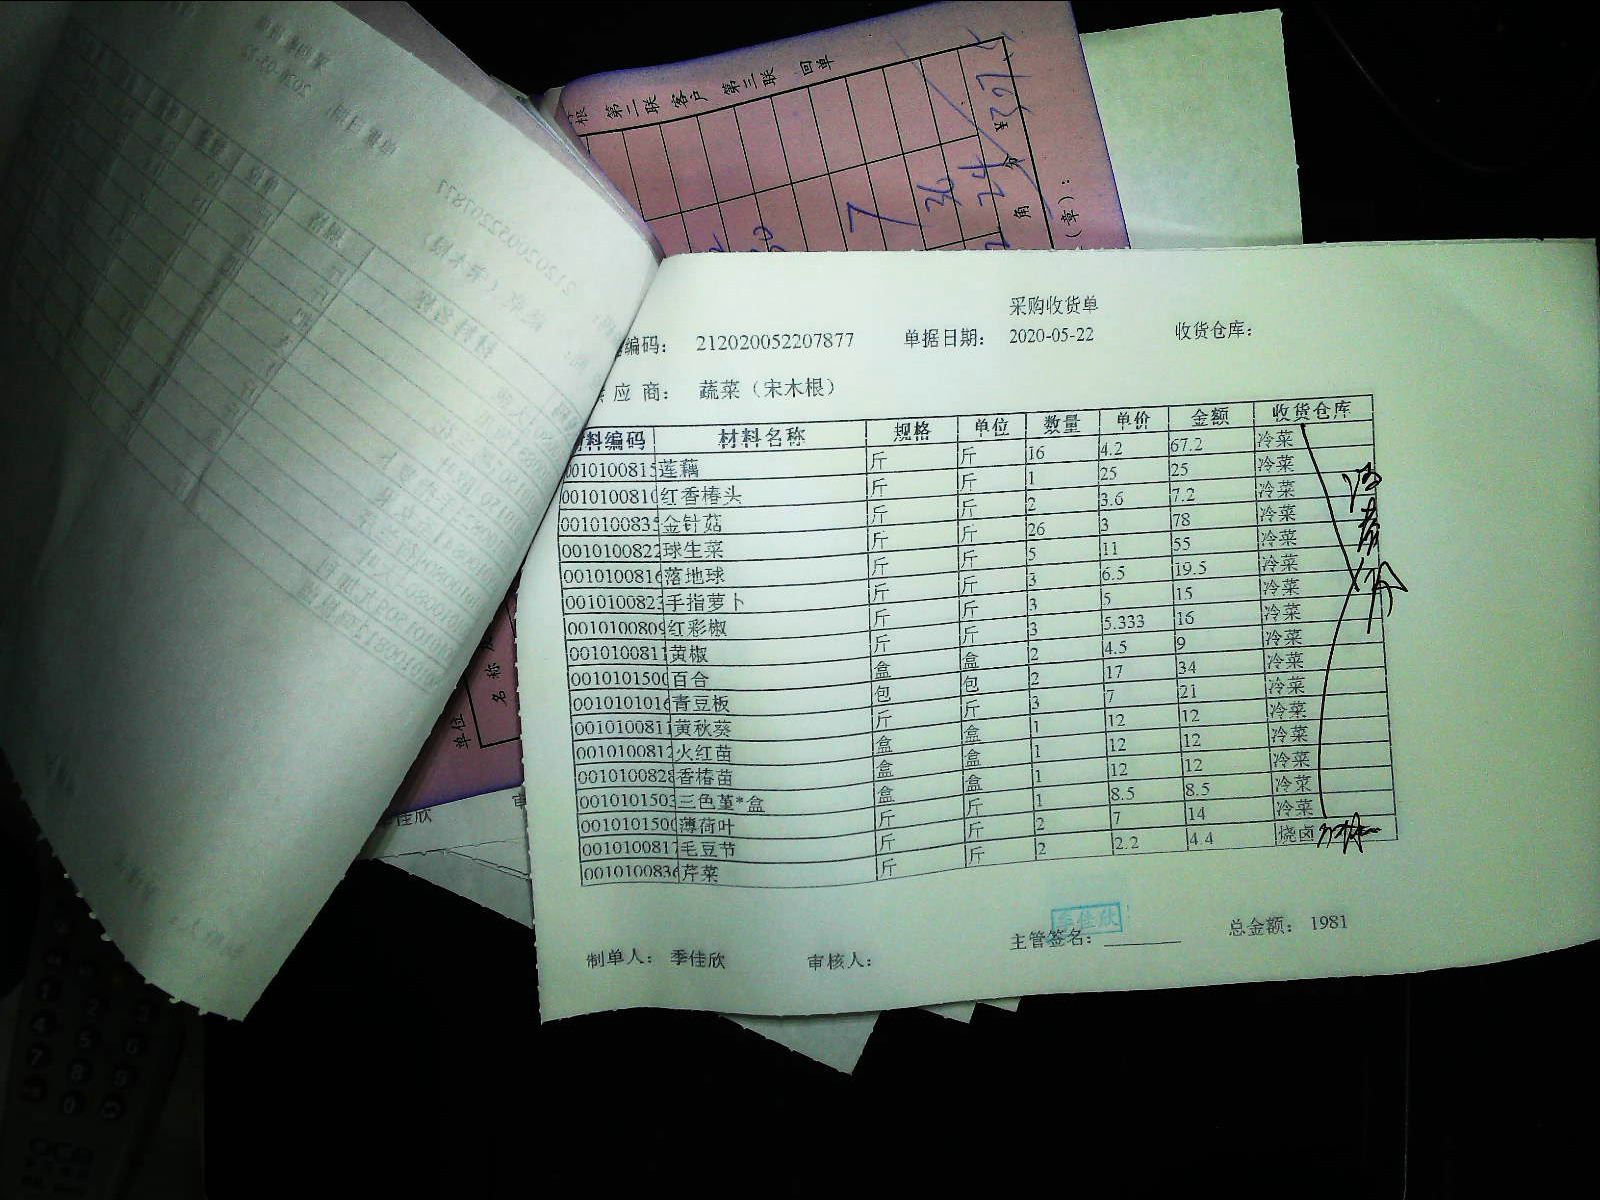 第二联 客户 第三联 回单
角 分
(章):
采购收货单
编码: 212020052207877 单据日期: 2020-05-22 收货仓库:
应 商: 蔬菜(宋木根)
材料编码 材料名称 规格 单位 数量 单价 金额 收货仓库
0010100815 莲藕 斤 斤 16 4.2 67.2 冷菜
001010081 红香椿头 斤 斤 1 25 25 冷菜
001010083 金针菇 斤 斤 2 3.6 7.2 冷菜
0010100822 球生菜 斤 斤 26 3 78 冷菜
001010081 落地球 斤 斤 5 11 55 冷菜
0010100823 手指萝卜 斤 斤 3 6.5 19.5 冷菜
0010100809 红彩椒 斤 斤 3 5 15 冷菜
001010081 黄椒 斤 斤 3 5.333 16 冷菜
001010150 百合 盒 盒 2 4.5 9 冷菜
001010101 青豆板 包 包 2 17 34 冷菜
001010081 黄秋葵 斤 斤 3 7 21 冷菜
001010081 火红苗 盒 盒 1 12 12 冷菜
0010100828 香椿苗 盒 盒 1 12 12 冷菜
0010101503 三色堇*盒 盒 盒 1 12 12 冷菜
001010150 薄荷叶 斤 斤 1 8.5 8.5 冷菜
001010081 毛豆节 斤 斤 2 7 14 冷菜
001010083 芹菜 斤 斤 2 2.2 4.4 烧卤
季佳欣
主管签名: 总金额: 1981
制单人: 季佳欣 审核人:
单位
名称
佳欣